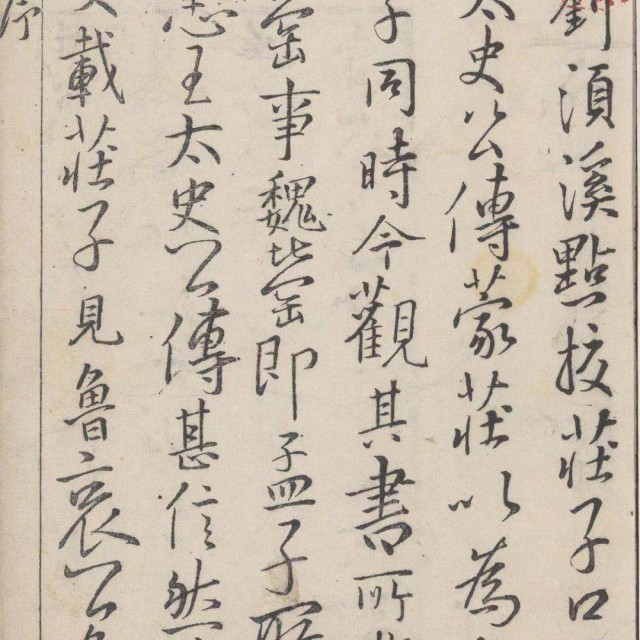 須溪點校莊子口
太史公傳蒙莊以為
子同時今觀其書所
罃事魏罃即孟子
惠王太史公傳甚信然
載莊子見魯哀公
序